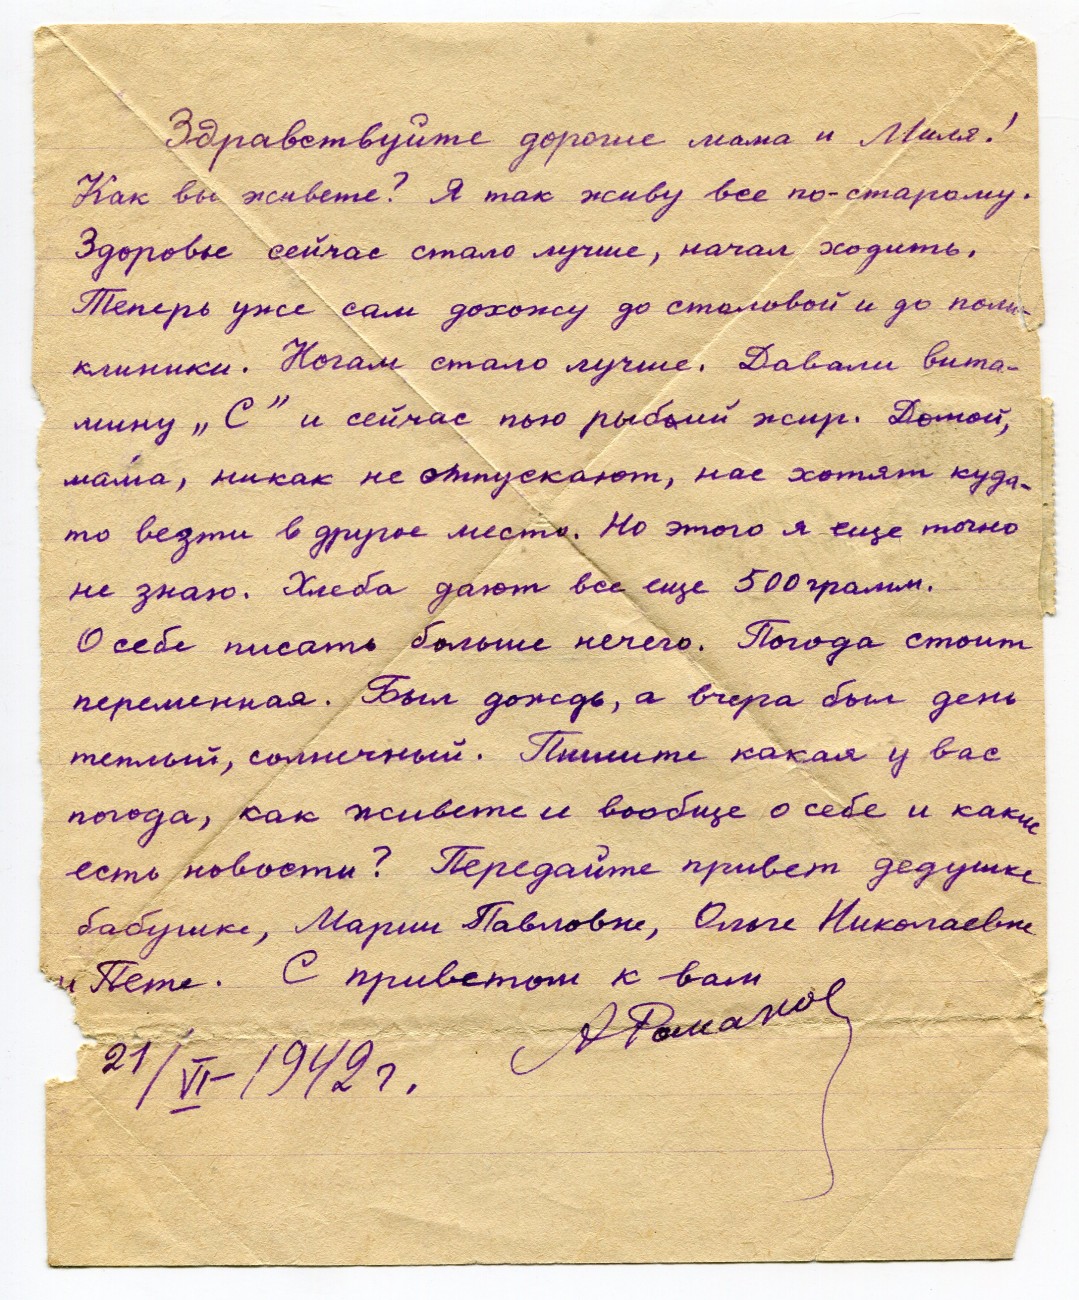 Здравствуйте дорогие мама и Миля!
Как вы живете? Я так живу все по-старому.
Здоровье сейчас стало лучше, начал ходить.
Теперь уже сам дохожу до столовой и до поли-
клиники. Ногам стало лучше. Давали вита-
мину „С" и сейчас пью рыбий жир. Домой,
мама, никак не отпускают, нас хотят куда-
то везти в другое место. Но этого я еще точно
не знаю. Хлеба дают все еще 500 грамм.
О себе писать больше нечего. Погода стоит
переменная. Был дождь, а вчера был день
теплый, солнечный. Пишите какая у вас
погода, как живете и вообще о себе и какие
есть новости? Передайте привет дедушке
бабушке, Марии Павловне, Ольге Николаевне
и Пете. С приветом к вам
А Романов
21/VI-1942 г.